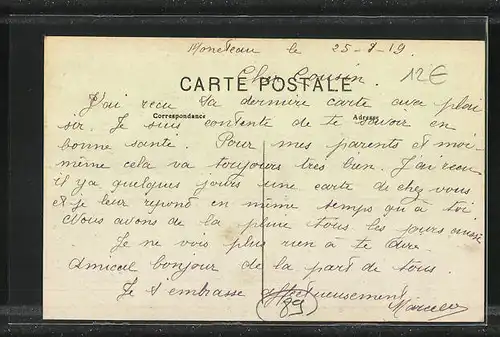 Moneteau le 25-8-19
Cher Cousin
12€
CARTE POSTALE
J'ai recu ta dernire carte avec plai
Correspondance Adresse
sir. Je suis contente de te savoir en
bonne sante. Pour mes parents et moi-
même cela va toujours tres bien. J'ai recu
il y a quelques jours une carte de chez vous
et je leur repond en même temps qu'à toi
Nous avons de la pluie tous les jours aussi
Je ne vois plus rien à te dire
amical bonjour de la part de tous.
Je t embrasse affectueusement
Marcelle
(89)